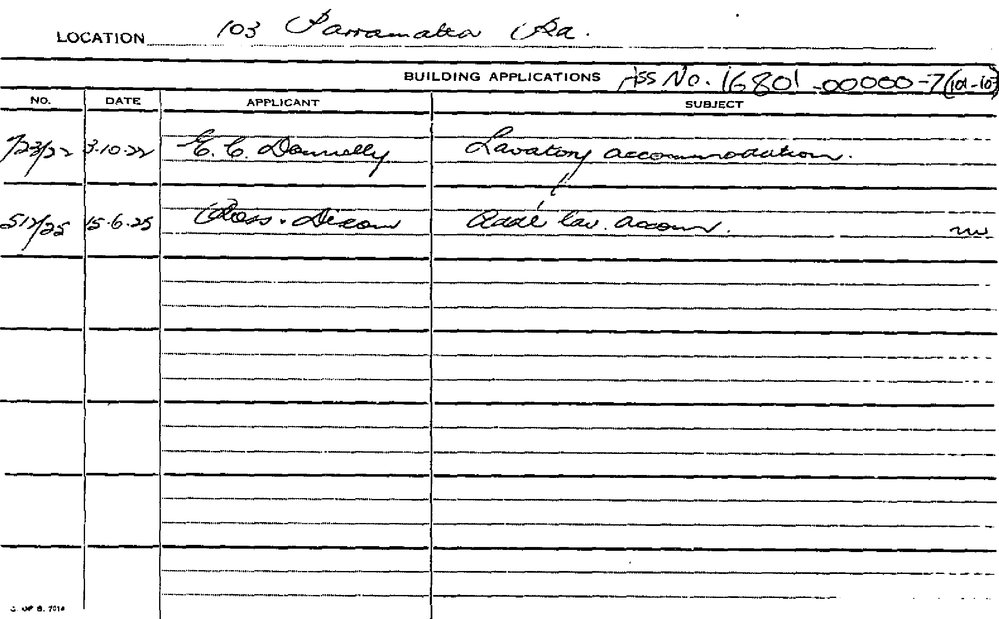 LOCATION 103 Parramatta Rd.
BUILDING APPLICATIONS Ass No. 16801-00000-7 (101-107)
NO. DATE APPLICANT SUBJECT
723/22 3.10.22 E. C. Donnelly Lavatory accommodation.
517/25 15.6.25 Ross. Dixon Add. lav. accom.